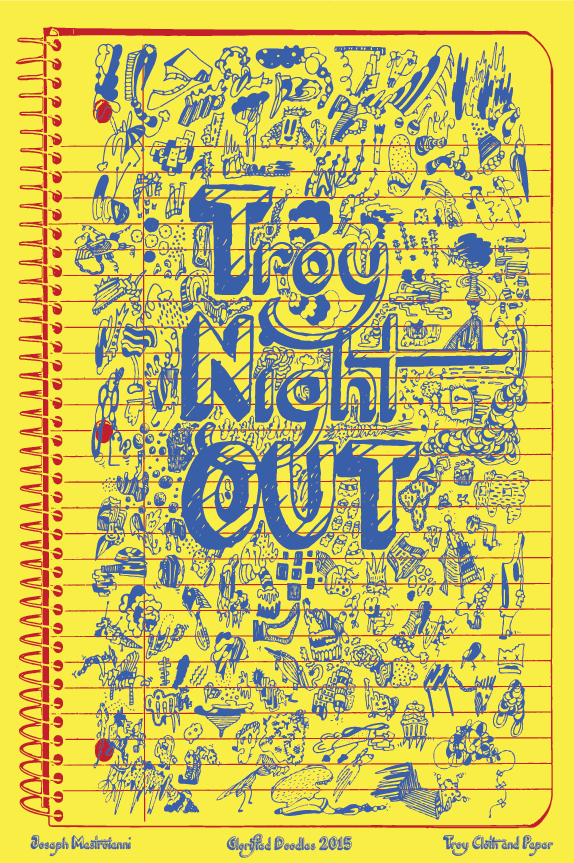 Troy
Night
OUT
Joseph Mastroianni
Glorified Doodles 2015
Troy Cloth and Paper